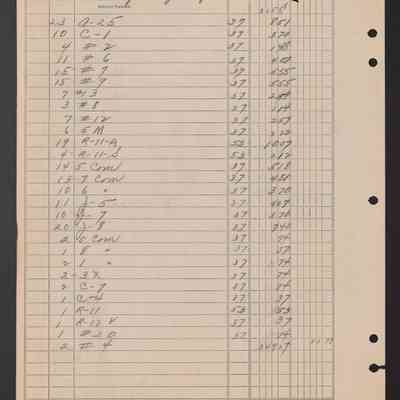 23 A-25 37 851
10 C-1 37 370
4 #2 37 148
11 #6 37 407
15 #7 37 555
15 #9 37 555
7 #13 37 259
3 #8 37
7 #12 37 259
6 E M 37 222
19 R-11-A 53 1007
4 R-11-S 53 212
14 5 Com 37 518
13 7 Com 37 481
10 6 " 37 370
11 J-5 37 407
10 J-7 37 370
20 J-8 37 740
2 Com 37 74
1 8 " 37 37
2 1 " 37 74
2 3X 37 74
2 C-7 37 74
1 C-4 37 37
1 R-11 53 53
1 37 37
1 37
2 #4